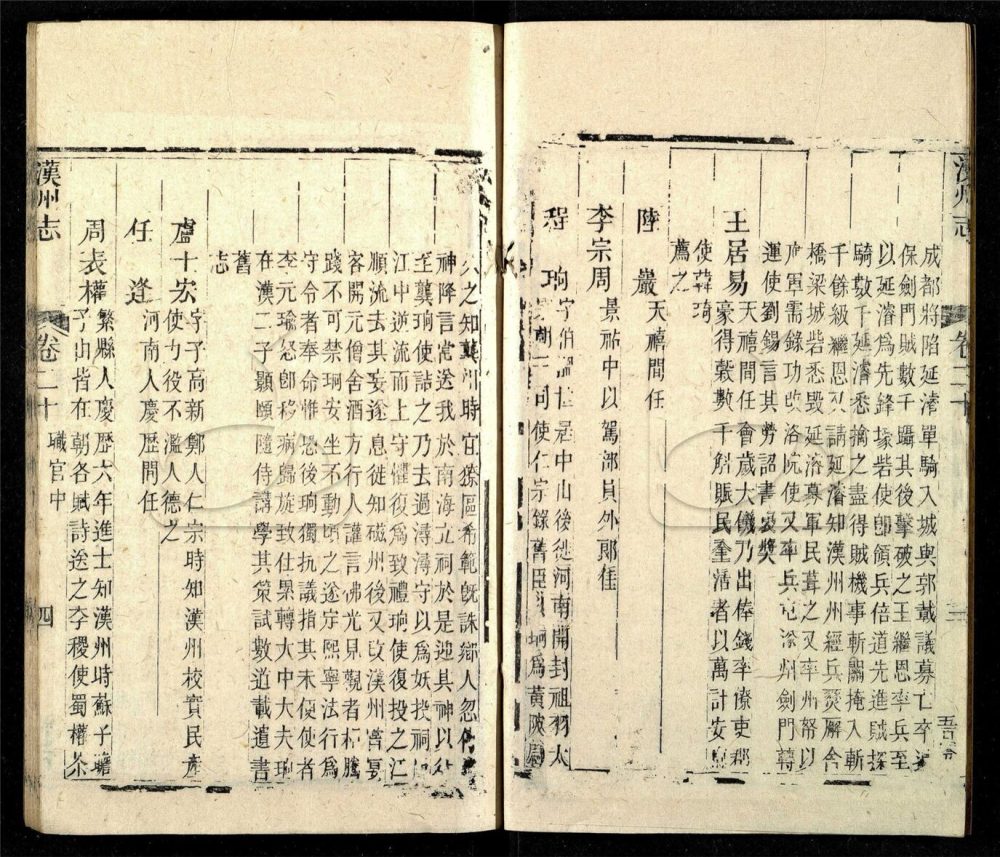 漢州志
卷二十
三
成都將陷延濬單騎入城與郭載議募亡卒
保劍門賊數千躡其後擊破之王繼恩率兵至
以延濬爲先鋒壕砦使卽領兵倍道先進賊
騎數千延濬悉擒之盡得賊機事斬關掩入斬
千餘級繼恩又請延濬知漢州州經兵燹廨舍
橋梁城砦悉毀延濬募軍民葺之又率州帑以
軍需錄功改洛苑使又率兵
運使劉錫言其勞詔書褒奬
王居易 天禧間任會歲大饑乃出俸錢率僚吏
豪得穀數千斛賑民全活者以萬計安
使韓琦
薦之
陸 嚴 天禧間任
李宗周 景祐中以駕部員外郞任
程 珦 字伯溫世居中山後徙河南開封祖羽太
同使仁宗錄舊臣 珦爲黃陂
久之知龔州時宜獠區希範旣誅鄉人忽
神降言當送我於南海立祠於是迎其神以
至龔珦使詰之乃去過潯潯守以爲妖投祠
江中逆流而上守懼復爲致禮珦使復投之江
順流去其妄遂息徙知磁州後又改漢州嘗宴
客開元僧舍酒方行人讙言佛光見觀者 騰
踐不可禁珦安坐不動頃之遂定熙寧法行爲
守令者奉命惟恐後珦獨抗議指其未便使者
李元瑜怒卽移病歸旋致仕累轉大中大夫珦
在漢二子顥頤隨侍講學其策試數道載遺書
舊
志
盧士宏 字子高新鄭人仁宗時知漢州校實民產
使力役不濫人德之
任 逵 河南人慶歷間任
周表權 繁縣人慶歷六年進士知漢州時蘇子瞻
子山皆在朝各賦詩送之李稷使蜀權茶
漢州志
卷二十
職官中
四